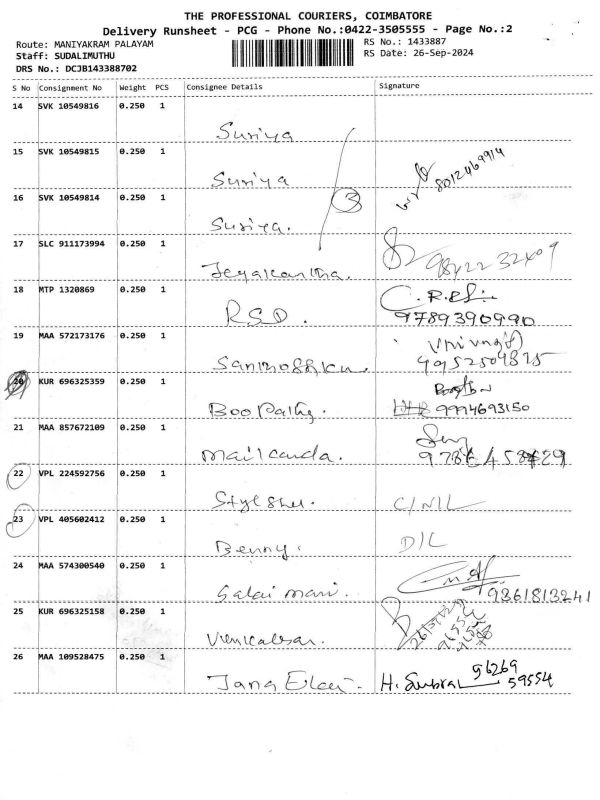 THE PROFESSIONAL COURIERS, COIMBATORE
Delivery Runsheet - PCG - Phone No.:0422-3505555 - Page No.:2
Route: MANIYAKRAM PALAYAM
RS No.: 1433887
Staff: SUDALIMUTHU
RS Date: 26-Sep-2024
DRS No.: DCJB143388702
S No Consignment No Weight PCS Consignee Details Signature
14 SVK 10549816 0.250 1
Suriya
15 SVK 10549815 0.250 1
8012469914
Suriya
16 SVK 10549814 0.250 1
3
Suriya.
17 SLC 911173994 0.250 1
9842232409
Jeyakantha.
18 MTP 1320869 0.250 1
R.S.D.
9789390990
19 MAA 572173176 0.250 1
20 KUR 696325359 0.250 1
Boopathy.
9994693150
21 MAA 857672109 0.250 1
22 VPL 224592756 0.250 1
23 VPL 405602412 0.250 1
Benny.
D/L
24 MAA 574300540 0.250 1
Salai mari.
9361813241
25 KUR 696325158 0.250 1
26 MAA 109528475 0.250 1
96269
59554